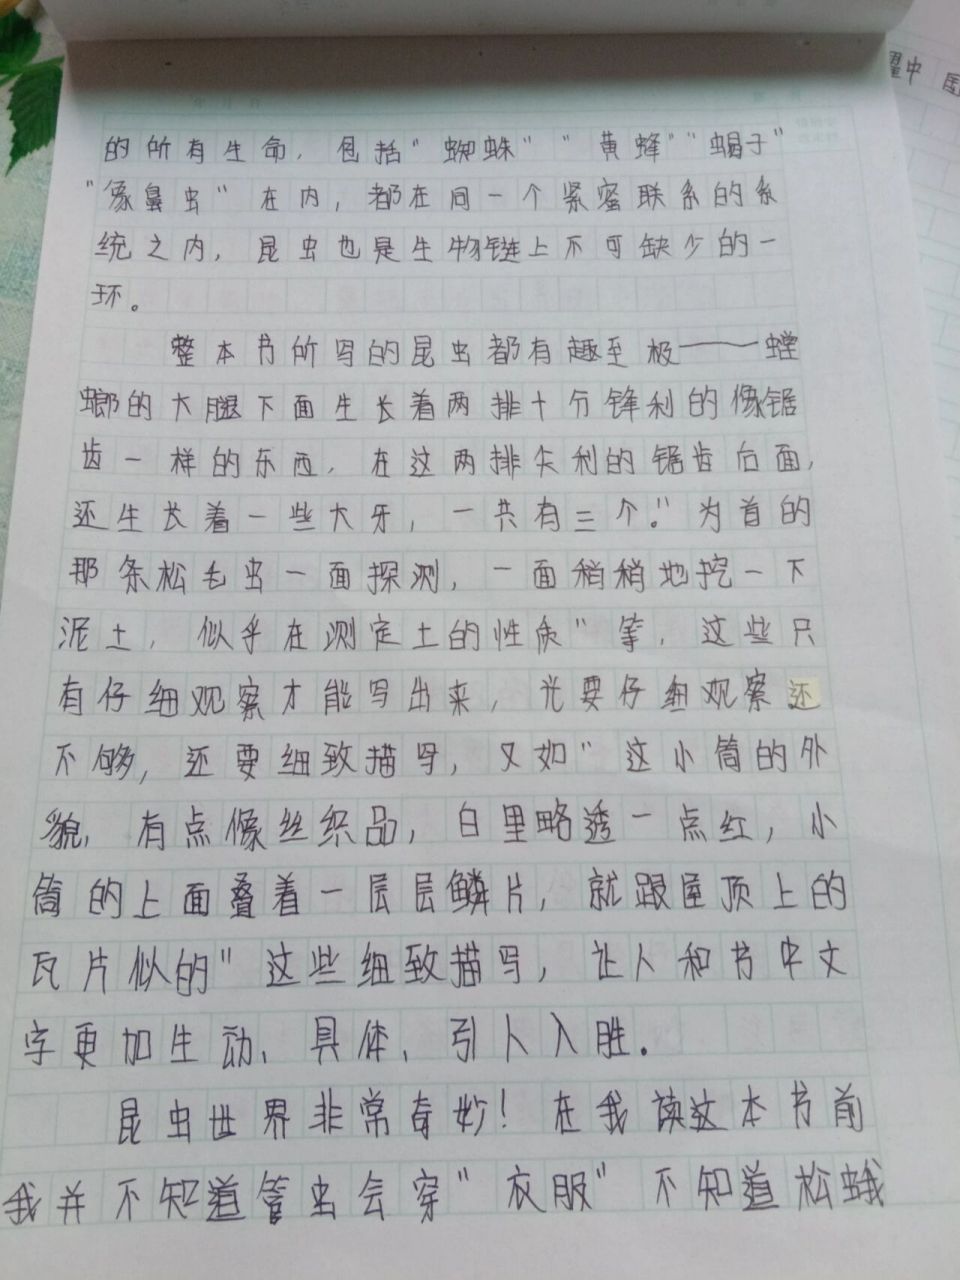 的所有生命，包括“蜘蛛”“黄蜂”“蝎子”
“象鼻虫”在内，都在同一个紧密联系的系
统之内，昆虫也是生物链上不可缺少的一
环。
整本书所写的昆虫都有趣至极——螳
螂的大腿下面生长着两排十分锋利的像锯
齿一样的东西，在这两排尖利的锯齿后面，
还生长着一些大牙，一共有三个。”为首的
那条松毛虫一面探测，一面稍稍地挖一下
泥土，似乎在测定土的性质”等，这些只
有仔细观察才能写出来，光要仔细观察还
不够，还要细致描写，又如“这小筒的外
貌，有点像丝织品，白里略透一点红，小
筒的上面叠着一层层鳞片，就跟屋顶上的
瓦片似的”这些细致描写，让人和书中文
字更加生动，具体，引人入胜。
昆虫世界非常奇妙！在我读这本书前
我并不知道管虫会穿“衣服”不知道松蛾
曜中国